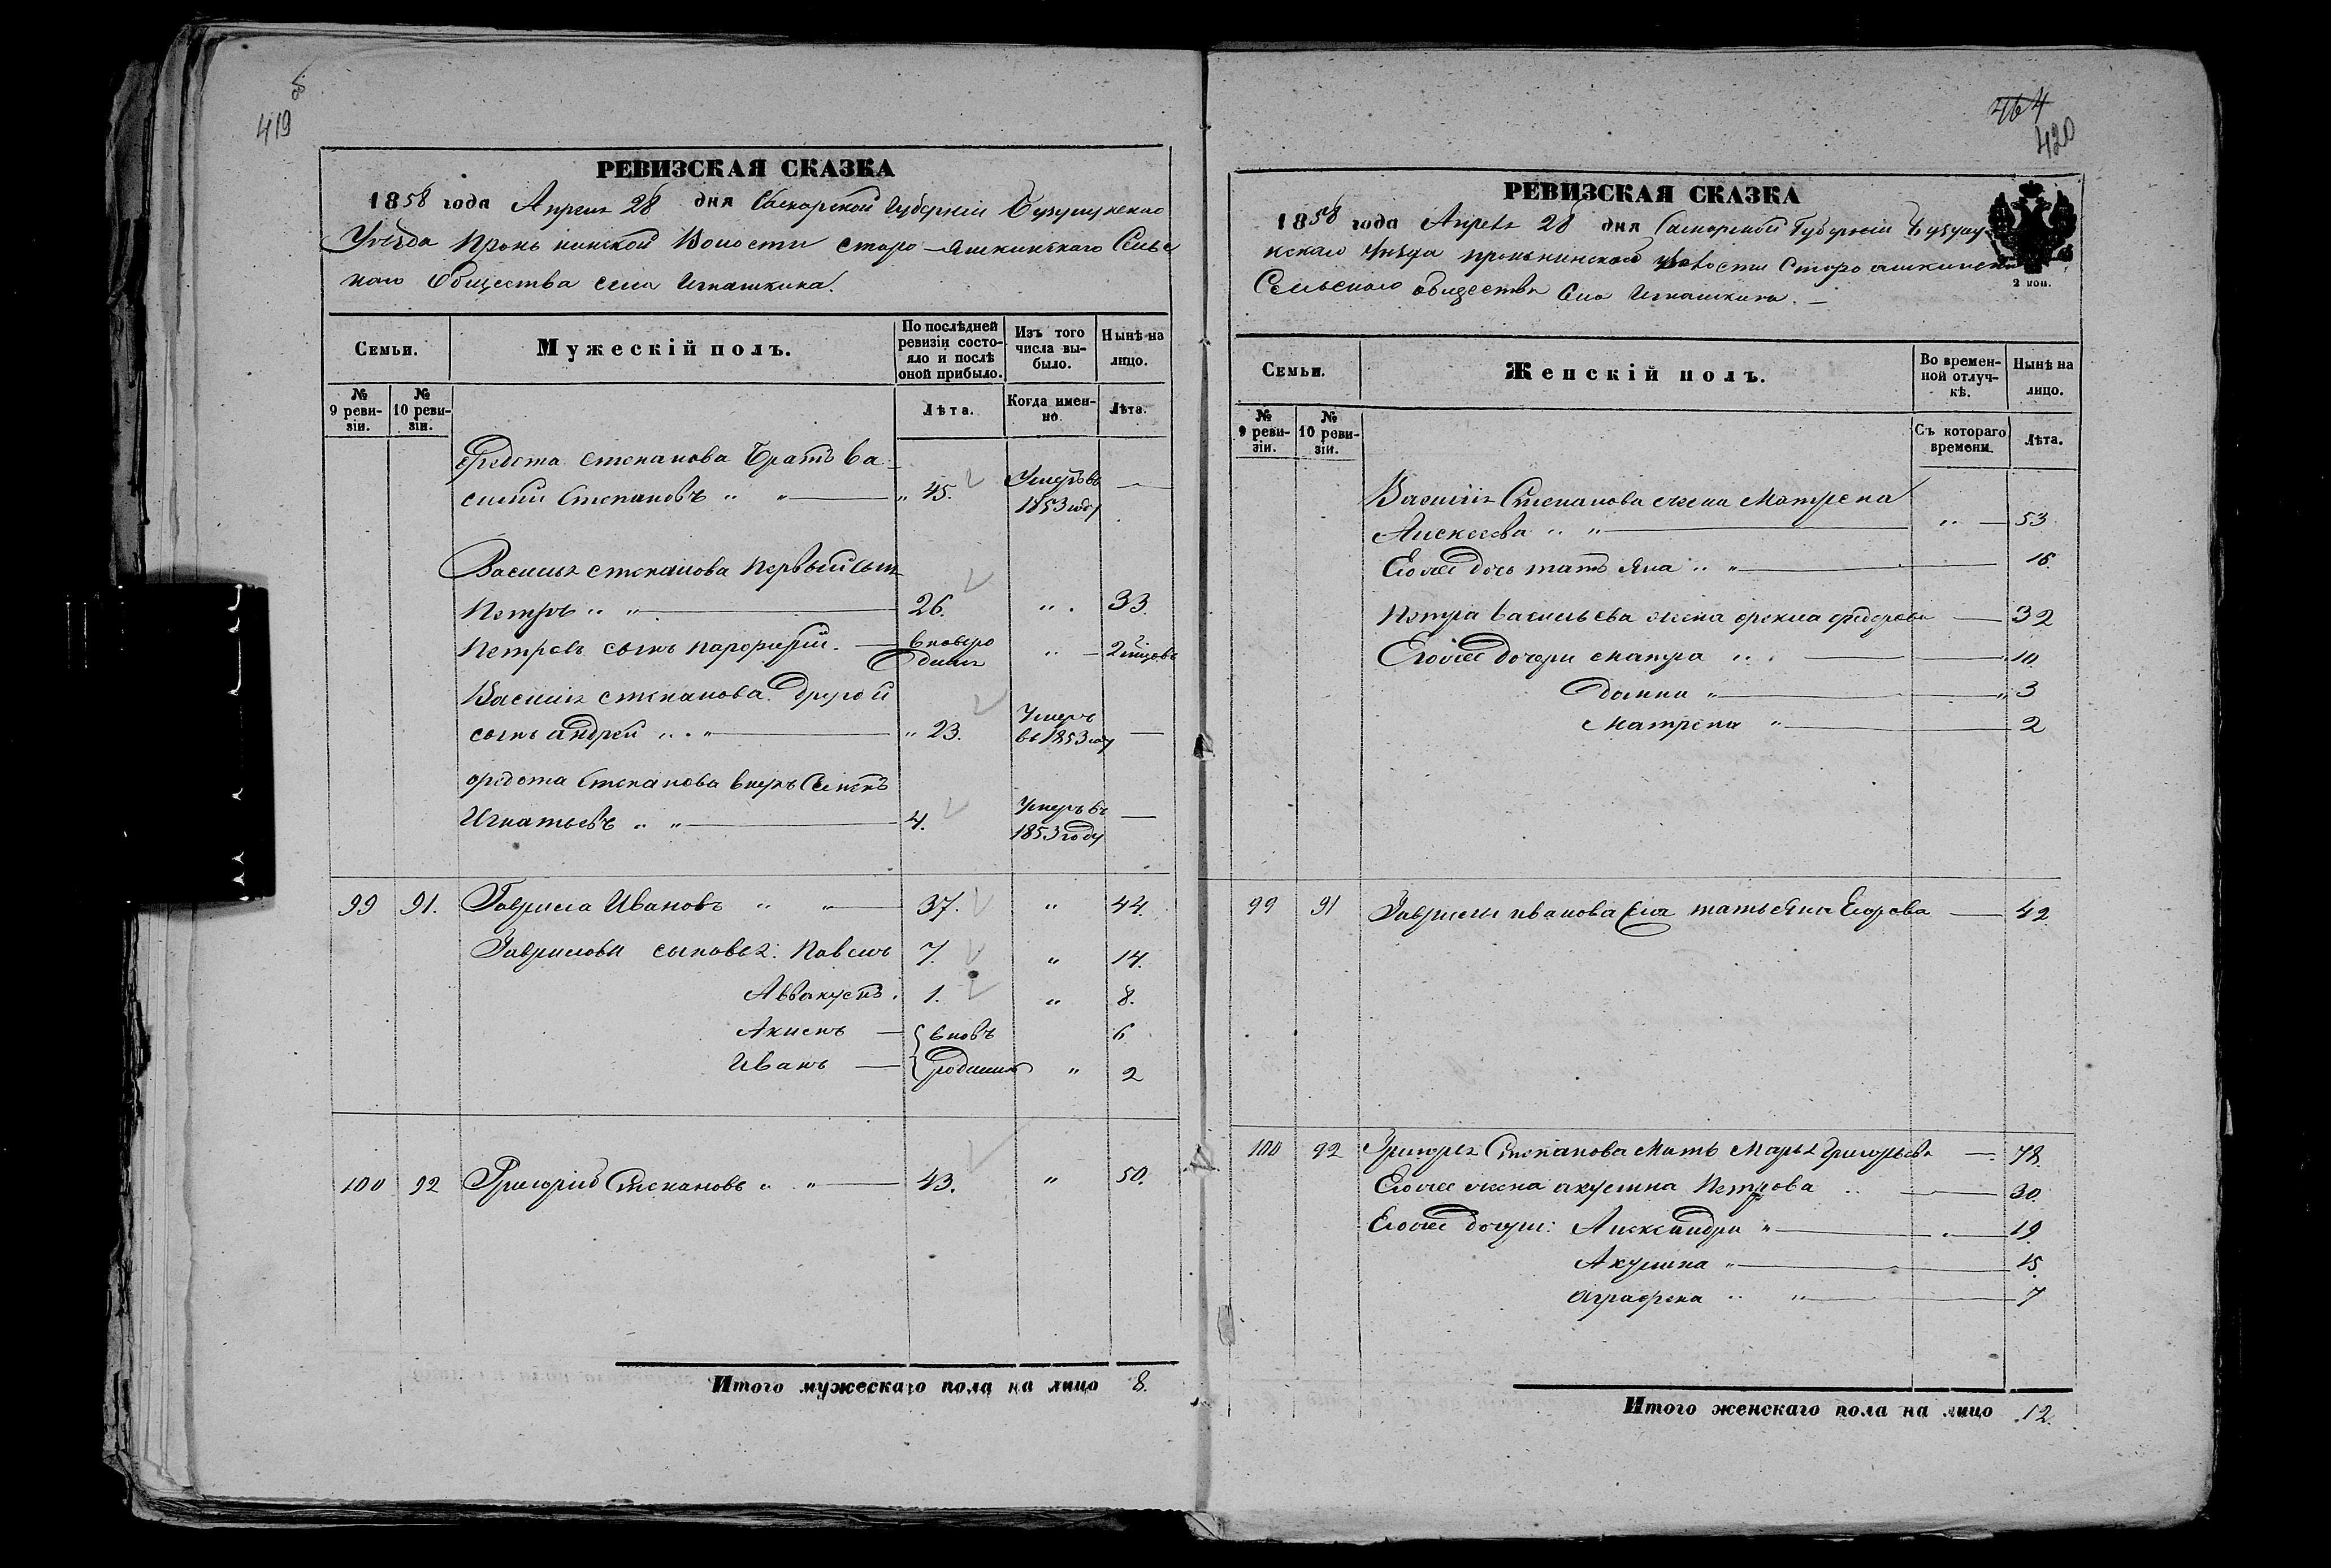 419 об
РЕВИЗСКАЯ СКАЗКА
1858 года Апреля 28 дня Самарской Губерніи Бузулукскаго
Уезда Пронькинской Волости Старо-яшкинскаго Сельс
каго Общества села Игнашкина.
Семьи.
Мужескій полъ.
По послѣдней ревизіи состояло и послѣ оной прибыло.
Изъ того числа выбыло.
Нынѣ на лицо.
№ 9 ревизіи.
№ 10 ревизіи.
Лѣта.
Когда именно.
Лѣта.
Федота Степанова Братъ Ва-
силій Степановъ „ „ — „ 45. Умеръ въ 1853 году —
Василья степанова первый сынъ
Петръ „ „ — 26. „ . 33.
Петровъ сынъ парфирій. — вновь родился „ — 2 мѣсцовъ
Василья степанова другой
сынъ андрей „ . „ — „ 23. Умеръ въ 1853 году —
федота Степанова внукъ Семенъ
Игнатьевъ „ „ — 4. Умеръ въ 1853 году —
99 91. Гаврила Ивановъ „ „ — 37. „ 44.
Гаврилова сыновья: Павелъ 7. „ 14.
Аввакумъ. 1. „ 8.
Акимъ — { вновь 6
Иванъ — { родились „ 2
100 92 Григорій Степановъ „ „ — 43. „ 50.
Итого мужескаго пола на лицо 8.
464
420
РЕВИЗСКАЯ СКАЗКА
1858 года Апреля 28 дня Самарской Губерніи Бузулу-
кскаго Уѣзда пронькинской волости Старо яшкинска
Сельскаго общества Села Игнашкина. —
2 коп.
Семьи.
Женскій полъ.
Во временной отлучкѣ.
Нынѣ на лицо.
№ 9 ревизіи.
№ 10 ревизіи.
Съ котораго времени.
Лѣта.
Василья Степанова жена Матрена
Алексеева „ „ — „ — 53.
Егоже дочь татьяна „ „ — 16.
Петра васильева жена фекла федорова — 32
Егоже дочери мавра „ . — 10.
домна „ — „ 3
Матрена „ — 2
99 91 Гаврилы иванова жена татьяна Егорова — 42.
100 92 Григорья Степанова Мать Марья Григорьева — 78.
Егоже жена акулина Петрова „ — 30.
Егоже дочери: Александра „ — „ — 19.
Акулина „ — 15.
Аграфена „ „ — 7
Итого женскаго пола на лицо .12.